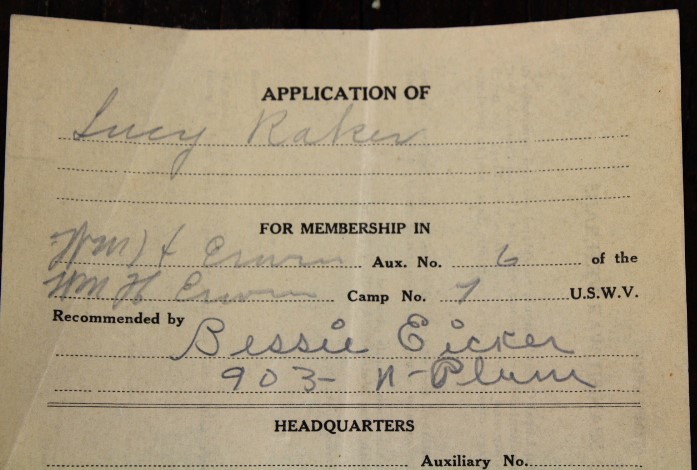 APPLICATION OF
Lucy Raker
FOR MEMBERSHIP IN
Wm H Erwin Aux. No. 6 of the
Wm H Erwin Camp No. 7 U.S.W.V.
Recommended by
Bessie Eicker
903- N-Plum
HEADQUARTERS
Auxiliary No.